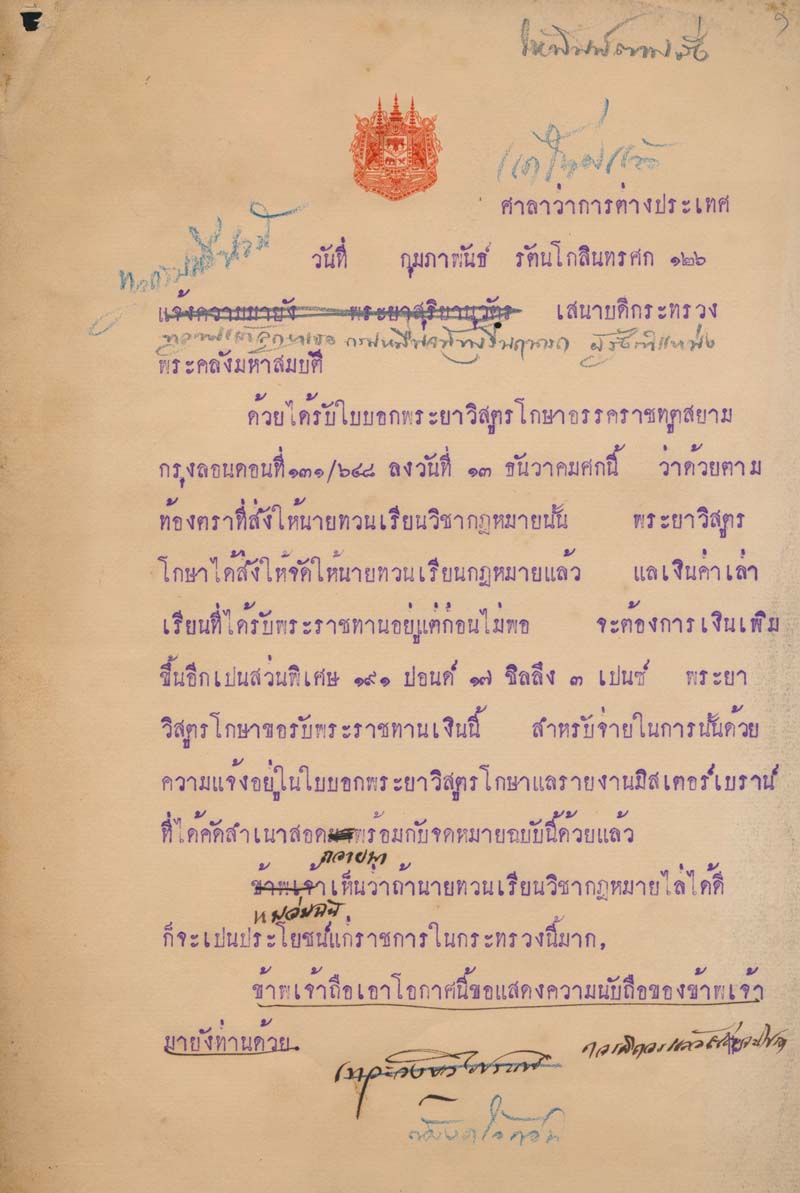 ๑
ให้พิมพ์ตามนี้
ศาลาว่าการต่างประเทศ
วันที่ กุมภาพันธ์ รัตนโกสินทรศก ๑๒๖
แจ้งความมายัง พระยาสุริยานุวัตร เสนาบดีกระทรวง
กรมหมื่น ผู้รั้งตำแหน่ง
พระคลังมหาสมบัติ
ด้วยได้รับใบบอกพระยาวิสูตรโกษาอรรคราชทูตสยาม
กรุงลอนดอนที่๑๓๑/๖๔๘ ลงวันที่ ๑๓ ธันวาคมศกนี้ ว่าด้วยตาม
ท้องตราที่สั่งให้นายทวนเรียนวิชากฎหมายนั้น พระยาวิสูตร
โกษาได้สั่งให้จัดให้นายทวนเรียนกฎหมายแล้ว แลเงินค่าเล่า
เรียนที่ได้รับพระราชทานอยู่แต่ก่อนไม่พอ จะต้องการเงินเพิ่ม
ขึ้นอีกเปนส่วนพิเศษ ๑๙๑ ปอนด์ ๑๗ ชิลลึง ๓ เปนซ์ พระยา
วิสูตรโกษาขอรับพระราชทานเงินนี้ สำหรับจ่ายในการนั้นด้วย
ความแจ้งอยู่ในใบบอกพระยาวิสูตรโกษาแลรายงานมิสเตอร์เบราน์
ที่ได้คัดสำเนาสอดมาพร้อมกับจดหมายฉบับนี้ด้วยแล้ว
ถวายมา
ข้าพเจ้าเห็นว่าถ้านายทวนเรียนวิชากฎหมายไล่ได้ดี
หม่อมฉัน
ก็จะเปนประโยชน์แก่ราชการในกระทรวงนี้มาก,
ข้าพเจ้าถือเอาโอกาศนี้ขอแสดงความนับถือของข้าพเจ้า
มายังท่านด้วย.
ควรมิควรแล้วแต่จะโปรด